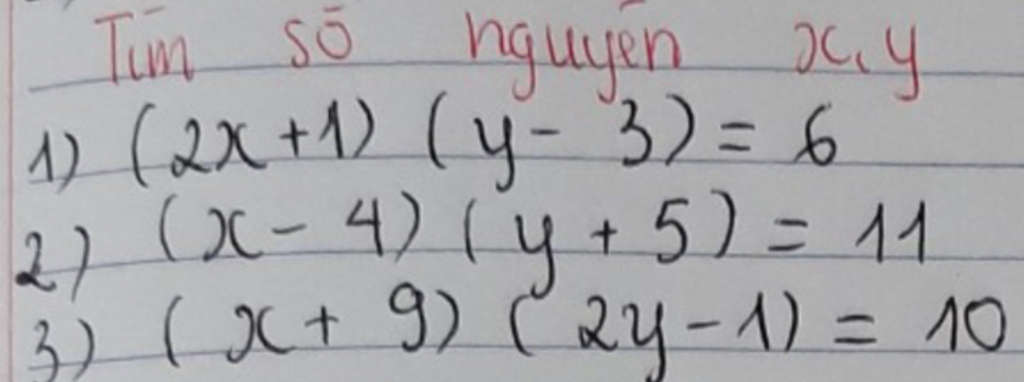 Tìm số nguyên x, y
1) (2x+1) (y - 3) = 6
2) (x - 4) (y + 5) = 11
3) (x + 9) (2y - 1) = 10